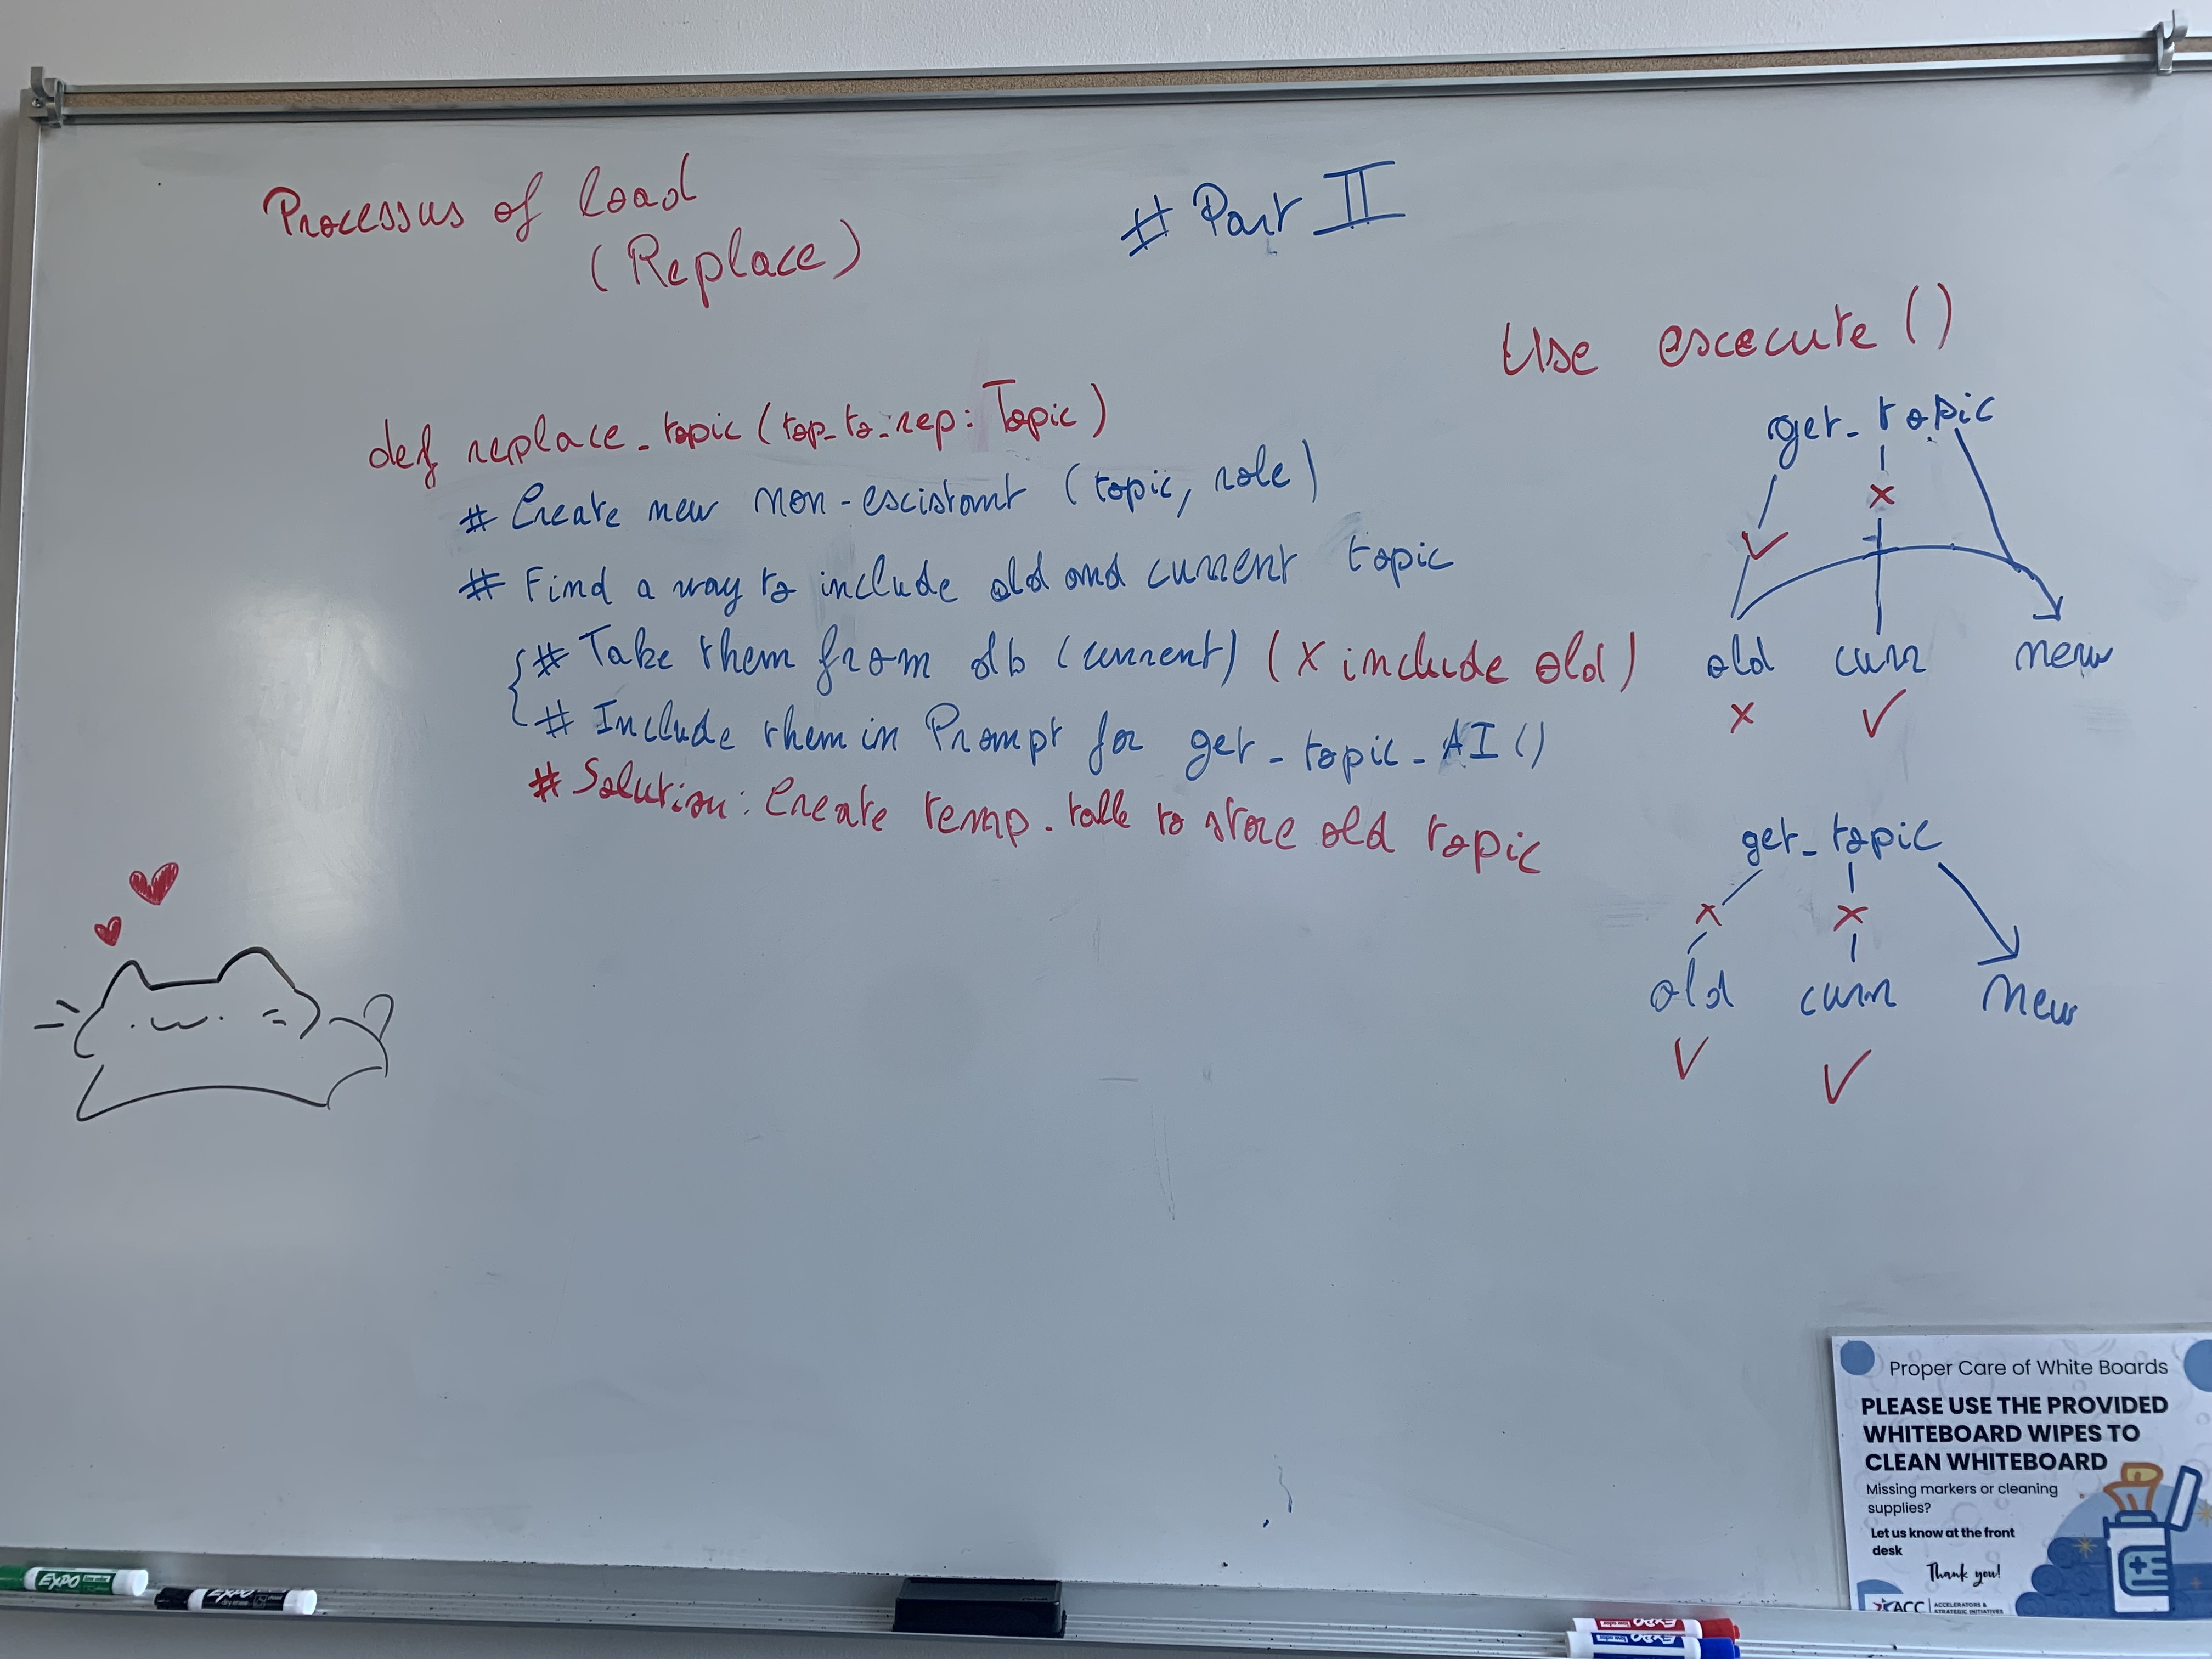 Processus of load
(Replace)
# Part II
Use escecute ()
def replace_topic (top_to_rep: Topic)
# Create new non-escistant (topic, role)
# Find a way to include old and current topic
# Take them from db (current) (x include old)
# Include them in Prompt for get_topic_AI()
# Solution: Create temp. table to store old topic
get_topic
x
✓
old curr new
x ✓
get_topic
x x
old curr new
✓ ✓
Proper Care of White Boards
PLEASE USE THE PROVIDED
WHITEBOARD WIPES TO
CLEAN WHITEBOARD
Missing markers or cleaning
supplies?
Let us know at the front
desk
Thank you!
ACC ACCELERATORS &
STRATEGIC INITIATIVES
EXPO
EXPO
EXPO
EXPO